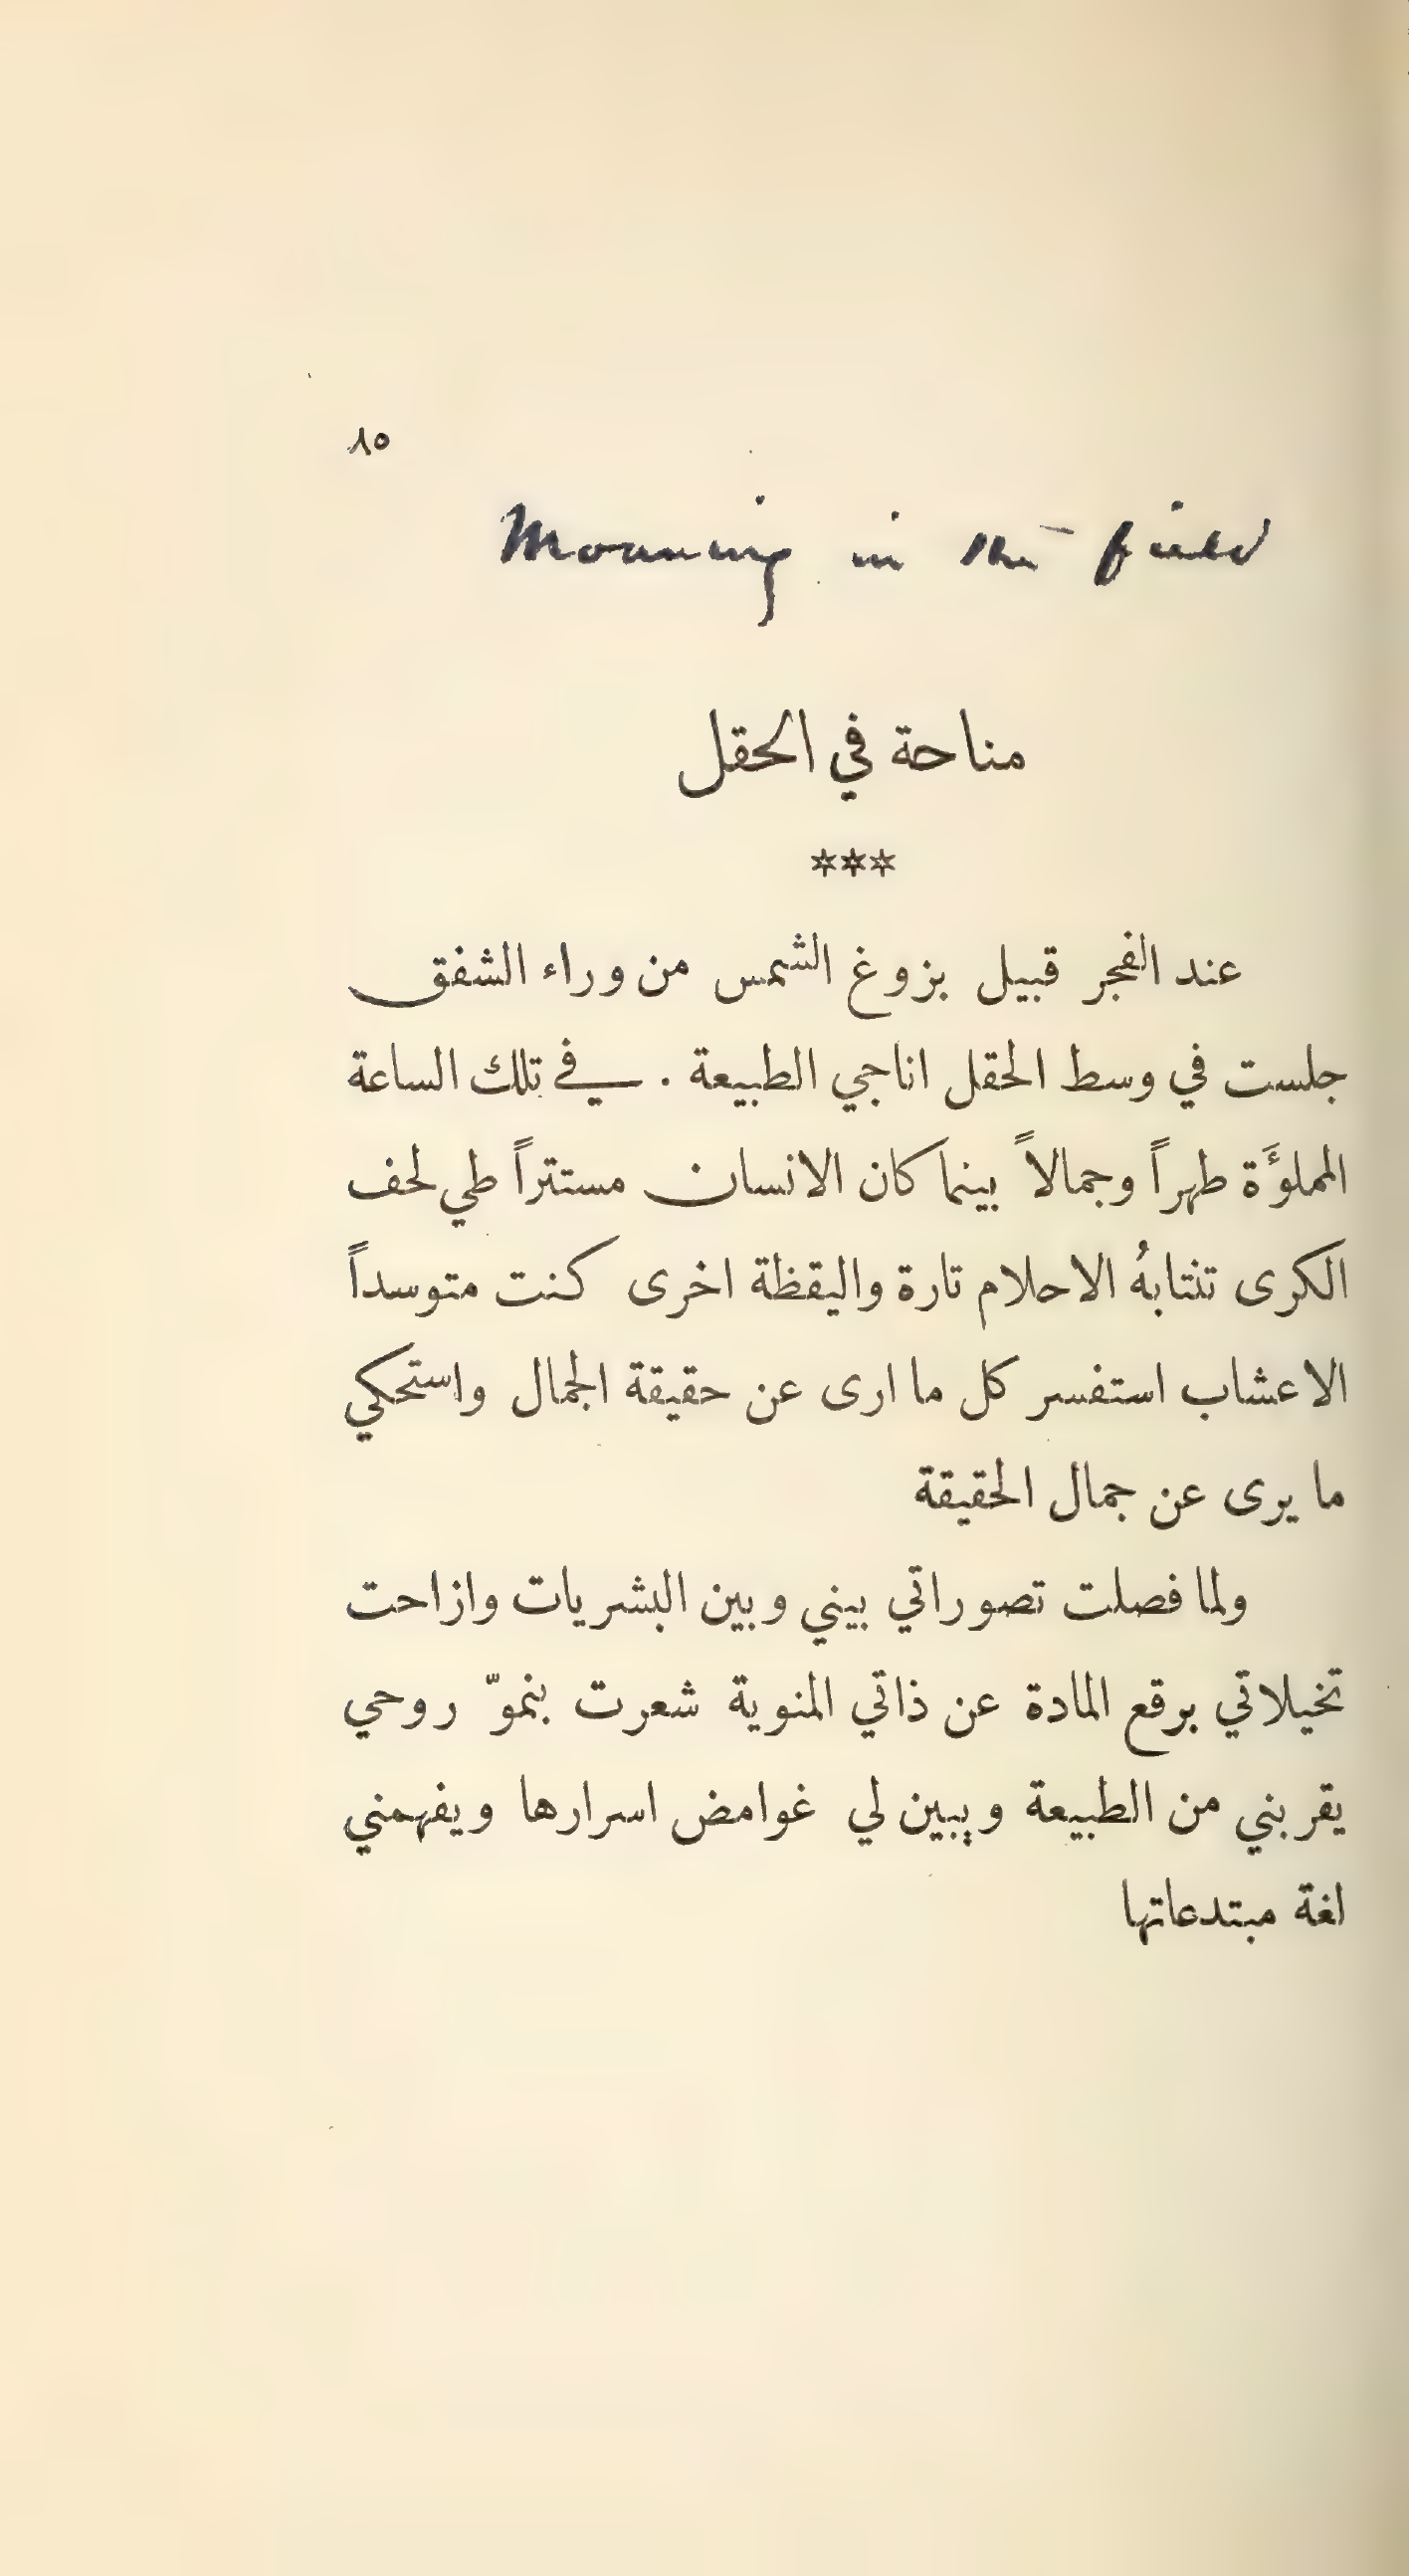 ٨٥
Mourning in the field
مناحة في الحقل
***
عند الفجر قبيل بزوغ الشمس من وراء الشفق
جلست في وسط الحقل اناجي الطبيعة . في تلك الساعة
المملوءَة طهراً وجمالاً بينما كان الانسان مستتراً طي لحف
الكرى تنتابهُ الاحلام تارة واليقظة اخرى كنت متوسداً
الاعشاب استفسر كل ما ارى عن حقيقة الجمال واستحكي
ما يرى عن جمال الحقيقة
ولما فصلت تصوراتي بيني وبين البشريات وازاحت
تخيلاتي برقع المادة عن ذاتي المنوية شعرت بنموّ روحي
يقربني من الطبيعة ويبين لي غوامض اسرارها ويفهمني
لغة مبتدعاتها